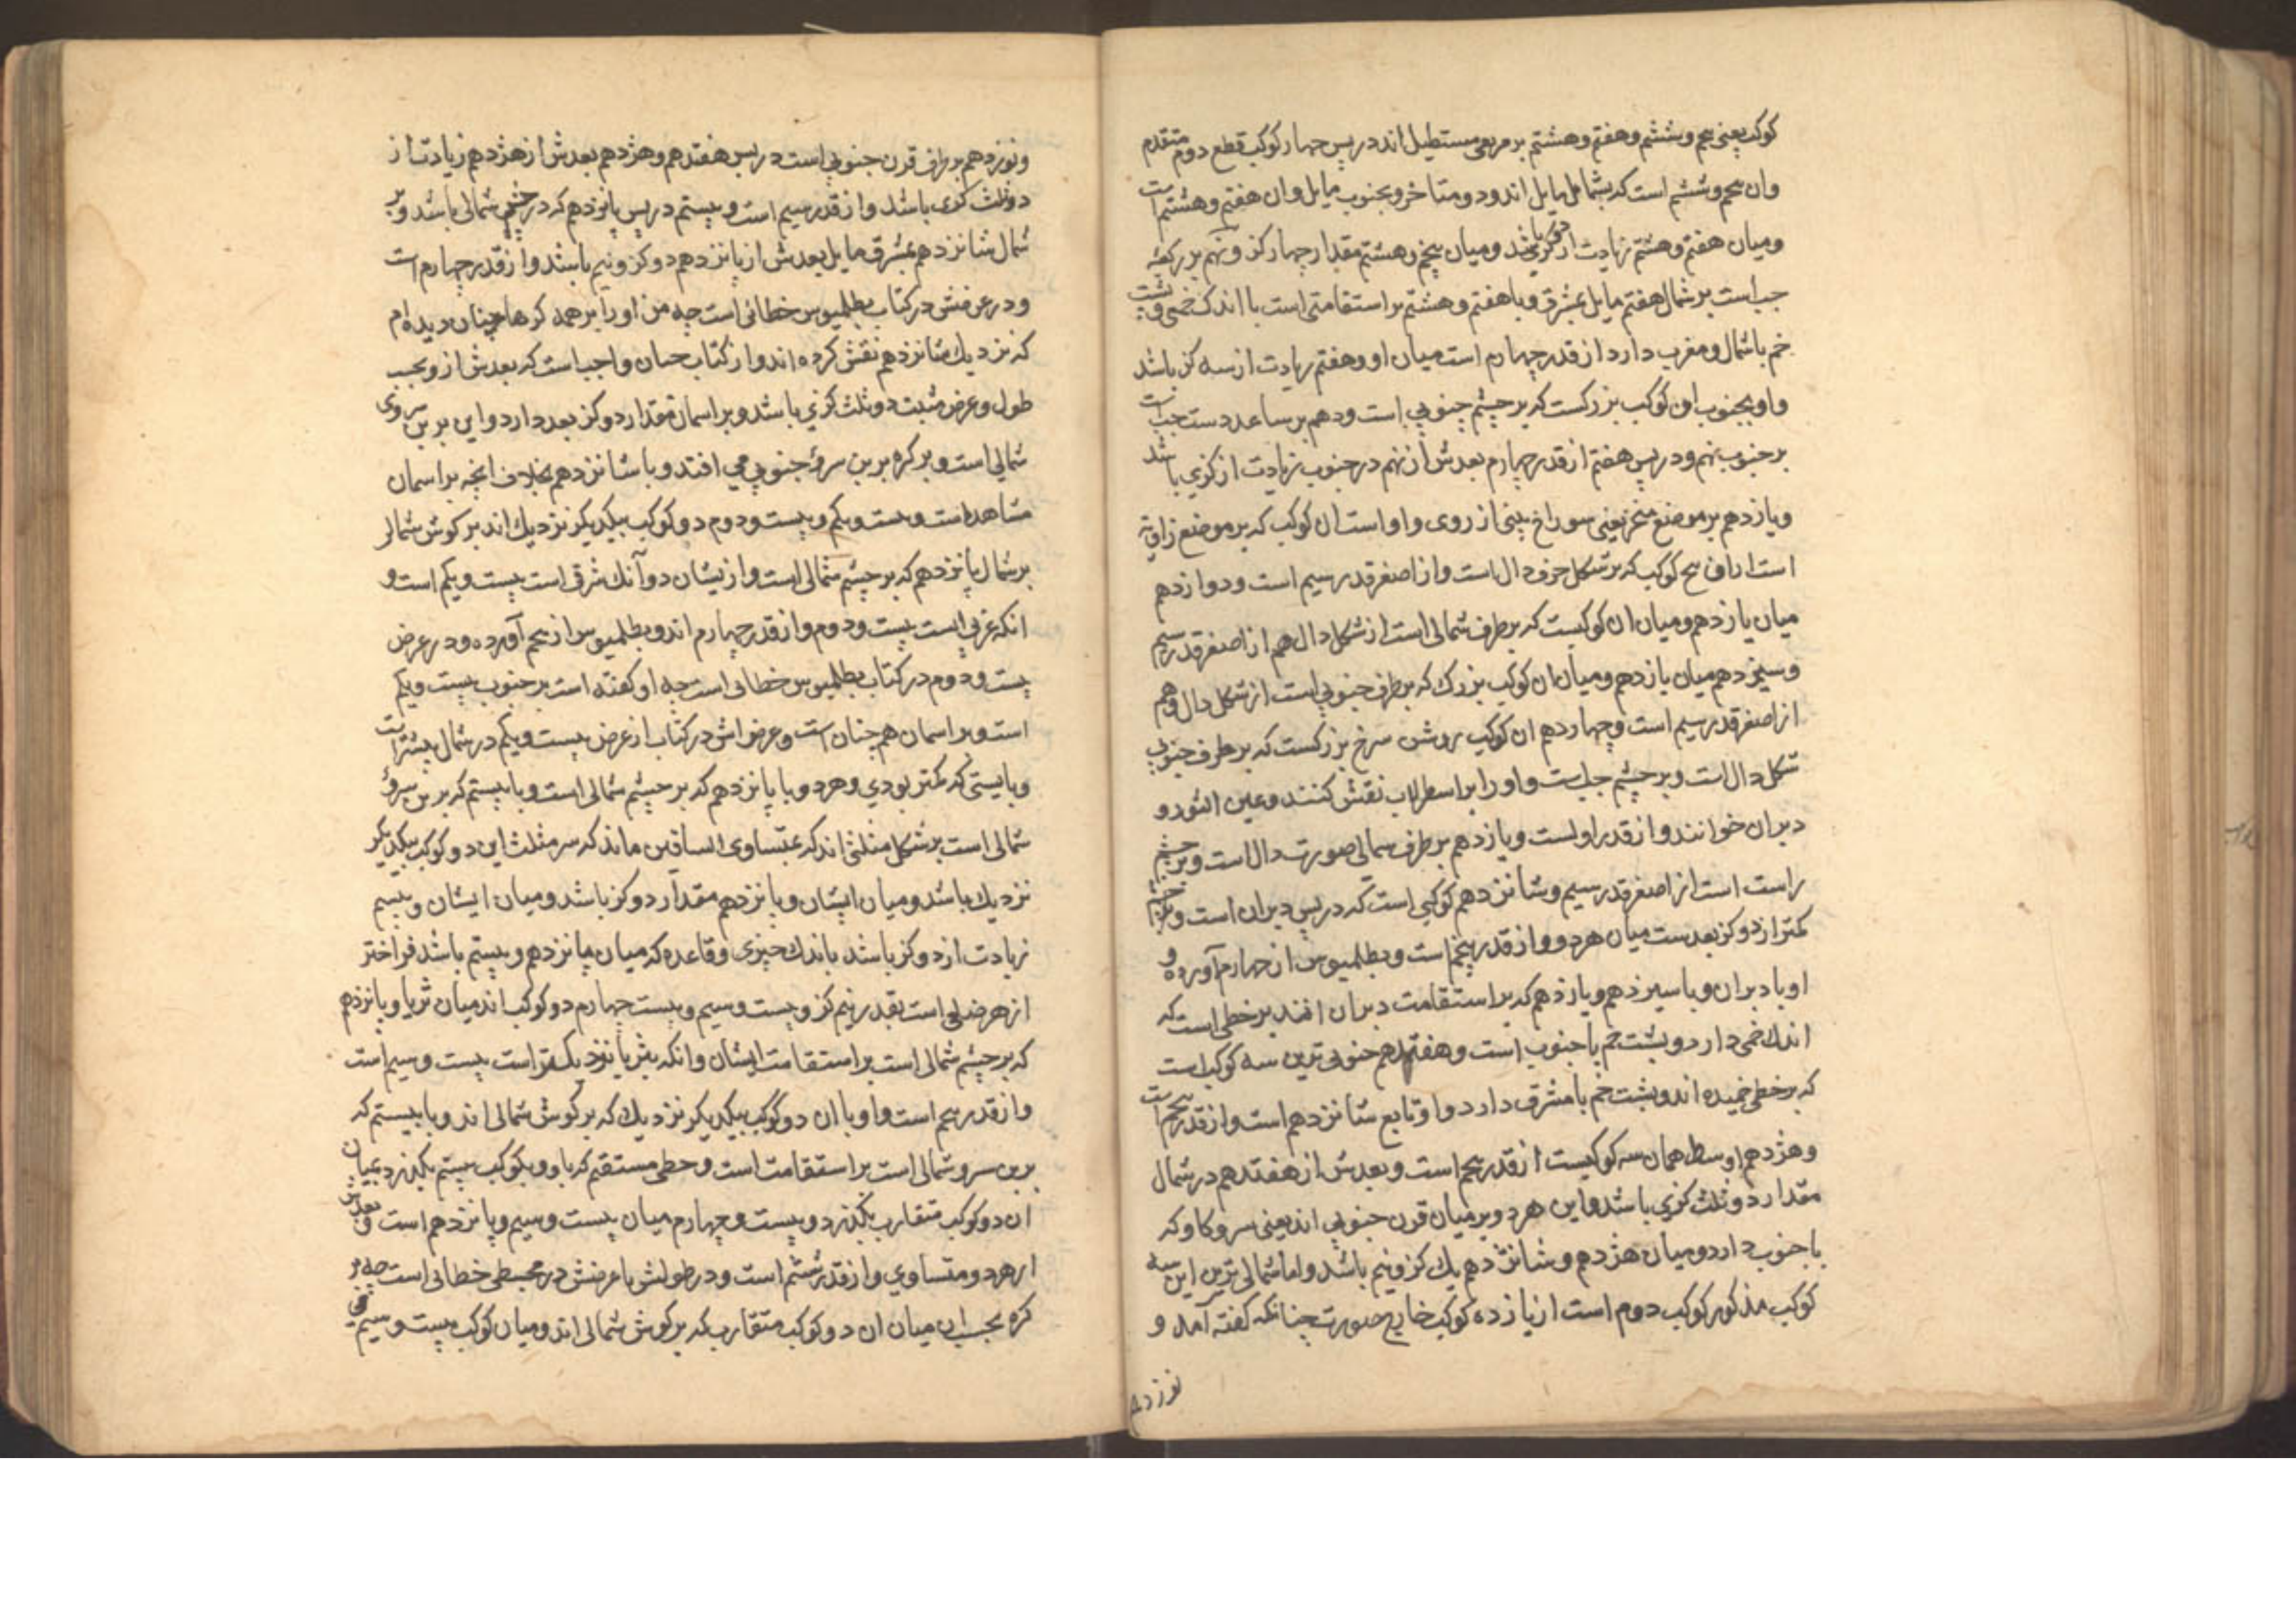 کوکب یعنی پنجم وششم وهفتم وهشتم بر مربعی مستطیل اند در پس چهار کوکب قطع دوم متقدم
وان پنجم وششم است که بشمال مایل اند ودو متاخر وبجنوب مایل وان هفتم وهشتم است
ومیان هفتم وهشتم زیادت از دو کز باشد ومیان پنجم وهشتم مقدار چهار کز ونهم بر رکبه
چپ است بر شمال هفتم مایل بمشرق وبا هفتم وهشتم بر استقامتی است با اندک خمی وپشت
خم با شمال ومغرب دارد از قدر چهارم است میان او وهفتم زیادت از سه کز باشد
واو بجنوب ان کوکب بزرکست که بر چشم جنوبی است ودهم بر ساعد دست چپ است
بر جنوب نهم ودر پس هفتم از قدر چهارم بعدش از نهم در جنوب زیادت از کزی باشد
ویازدهم بر موضع منخر یعنی سوراخ بینی از روی واو است ان کوکب که بر موضع زاویه
است از ان پنج کوکب که بر شکل حرف دال است واز اصغر قدر سیم است ودوازدهم
میان یازدهم ومیان ان کوکبست که بر طرف شمالی است از شکل دال هم از اصغر قدر سیم
وسیزدهم میان یازدهم ومیان ان کوکب بزرک که بر طرف جنوبی است از شکل دال وهم
از اصغر قدر سیم است وچهاردهم ان کوکب روشن سرخ بزرکست که بر طرف جنوبی
شکل دال است وبر چشم چپ است واو را بر اسطرلاب نقش کنند وعین الثور و
دبران خوانند واز قدر اولست وپازدهم بر طرف شمالی صورت دال است وبر چشم
راست است از اصغر قدر سیم وشانزدهم کوکبی است که در پس دبران است
کمتر از دو کز بعدست میان هر دو واز قدر پنجم است وبطلمیوس از چهارم آورده و
او با دبران وبا سیزدهم ویازدهم که بر استقامت دبران افتد بر خطی است که
اندک خمی دارد وپشت خم با جنوب است وهفتدهم جنوبی ترین سه کوکب است
که بر خطی خمیده اند وپشت خم با مشرق دارد واو تابع شانزدهم است واز قدر پنجم است
وهژدهم اوسط همان سه کوکبست از قدر پنجم است وبعدش از هفتدهم در شمال
مقدار دو ثلث کزی باشد واین هر دو بر میان قرن جنوبی اند یعنی سرو کاو که
با جنوب دارد ومیان هژدهم وشانزدهم یک کز ونیم باشد واما شمالی ترین این سه
کوکب مذکور کوکب دوم است از یازده کوکب خارج صورت چنانکه کفته آمد و
نوزدهم
ونوزدهم بر طرف قرن جنوبی است در پس هفتدهم وهژدهم بعدش از هژدهم زیادت از
دو ثلث کزی باشد واز قدر سیم است وبیستم در پس پانزدهم که در چشم شمالی باشد وبر
شمال شانزدهم بمشرق مایل بعدش از پانزدهم دو کز ونیم باشد واز قدر چهارم است
ودر عرضش در کتاب بطلمیوس خطائی است چه من او را بر همه کرها چنان دیده ام
که نزدیک شانزدهم نقش کرده اند واز کتاب چنان واجب است که بعدش از وبحسب
طول وعرض مثبت دو ثلث کزی باشد وبر اسمان مقدار دو کز بعد دارد واین بر بن سروی
شمالی است وبر کره بر بن سرو جنوبی می افتد وبا شانزدهم بخلاف انچه بر اسمان
مشاهد است وبیست ویکم وبیست ودوم دو کوکب بیکدیکر نزدیک اند بر کوش شمالی
بر شمال پانزدهم که بر چشم شمالی است واز یشان دو آنک شرقی است بیست ویکم است و
انکه غربی است بیست ودوم واز قدر چهارم اند وبطلمیوس از پنجم آورده ودر عرض
بیست ودوم در کتاب بطلمیوس خطائی است چه او کفته است بر جنوب بیست ویکم
است وبر اسمان هم چنان است وعرض اش در کتاب از عرض بیست ویکم در شمال بیشتر است
وبایستی که کمتر بودی وهر دو با پانزدهم که بر چشم شمالی است وبا بیستم که بر بن سرو
شمالی است بر شکل مثلثی اند که بمتساوی الساقین ماند که سر مثلث این دو کوکب بیکدیکر
نزدیک باشد ومیان ایشان وپانزدهم مقدار دو کز باشد ومیان ایشان وبیستم
زیادت از دو کز باشد باندک چیزی وقاعده که میان پانزدهم وبیستم باشد فراختر
از هر ضلعی است بقدر نیم کز وبیست وسیم وبیست چهارم دو کوکب اند میان ثریا وپانزدهم
که بر چشم شمالی است بر استقامت ایشان وانکه بثریا نزدیکتر است بیست وسیم است
واز قدر پنجم است واو با ان دو کوکب بیکدیکر نزدیک که بر کوش شمالی اند وبا بیستم که
بر بن سرو شمالی است بر استقامت است وخطی مستقیم که باو وبکوکب بیستم بکذرد بمیان
ان دو کوکب متقارب بکذرد وبیست وچهارم میان بیست وسیم وپانزدهم است وبعدش
از هر دو متساوی واز قدر ششم است ودر طولش با عرضش در مجسطی خطائی است چه بر
کره بحسب ان میان ان دو کوکب متقارب که بر کوش شمالی اند ومیان کوکب بیست وسیم